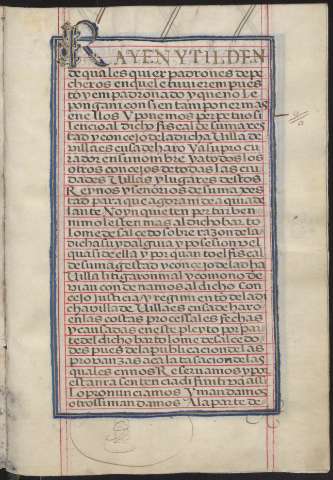 RAYEN Y TILDEN
de quales quier padrones de pe
cheros en que le tuvieren pues
to y em padronado y que no le
pongan ni consientan poner mas
en ellos Y ponemos perpetuo si
lencio al dicho fiscal de su magest
tad y concejo de la dicha Villa de
villaescusa de haro Y a su procu
rador en su nombre y a todos los
otros concejos de todas las ciu
dades Villas y lugares destos
Reynos y senorios de su mages
tad para que agora ni de aqui a de
lante No ynquieten perturben
ni molesten mas al dicho barto
lome de salcedo sobre razon de la
dicha su ydalguia y posesion vel
quasi de ella y por quanto el fis
cal de su magestad y concejo de la dicha
Villa litigaron mal y como no de
vian con denamos al dicho con
cejo justicia y regimiento de la di
cha villa de Villaescusa de haro
en las costas procesales fechas
y causadas en este pleyto por par
te del dicho bartolome de salcedo
des pues de la publicacion de las
probanzas aca la tasacion de las
quales en nos Reservamos y por
esta nra sentencia difinitiva assi
lo pronunciamos Y mandamos
otrossi mandamos A la parte de